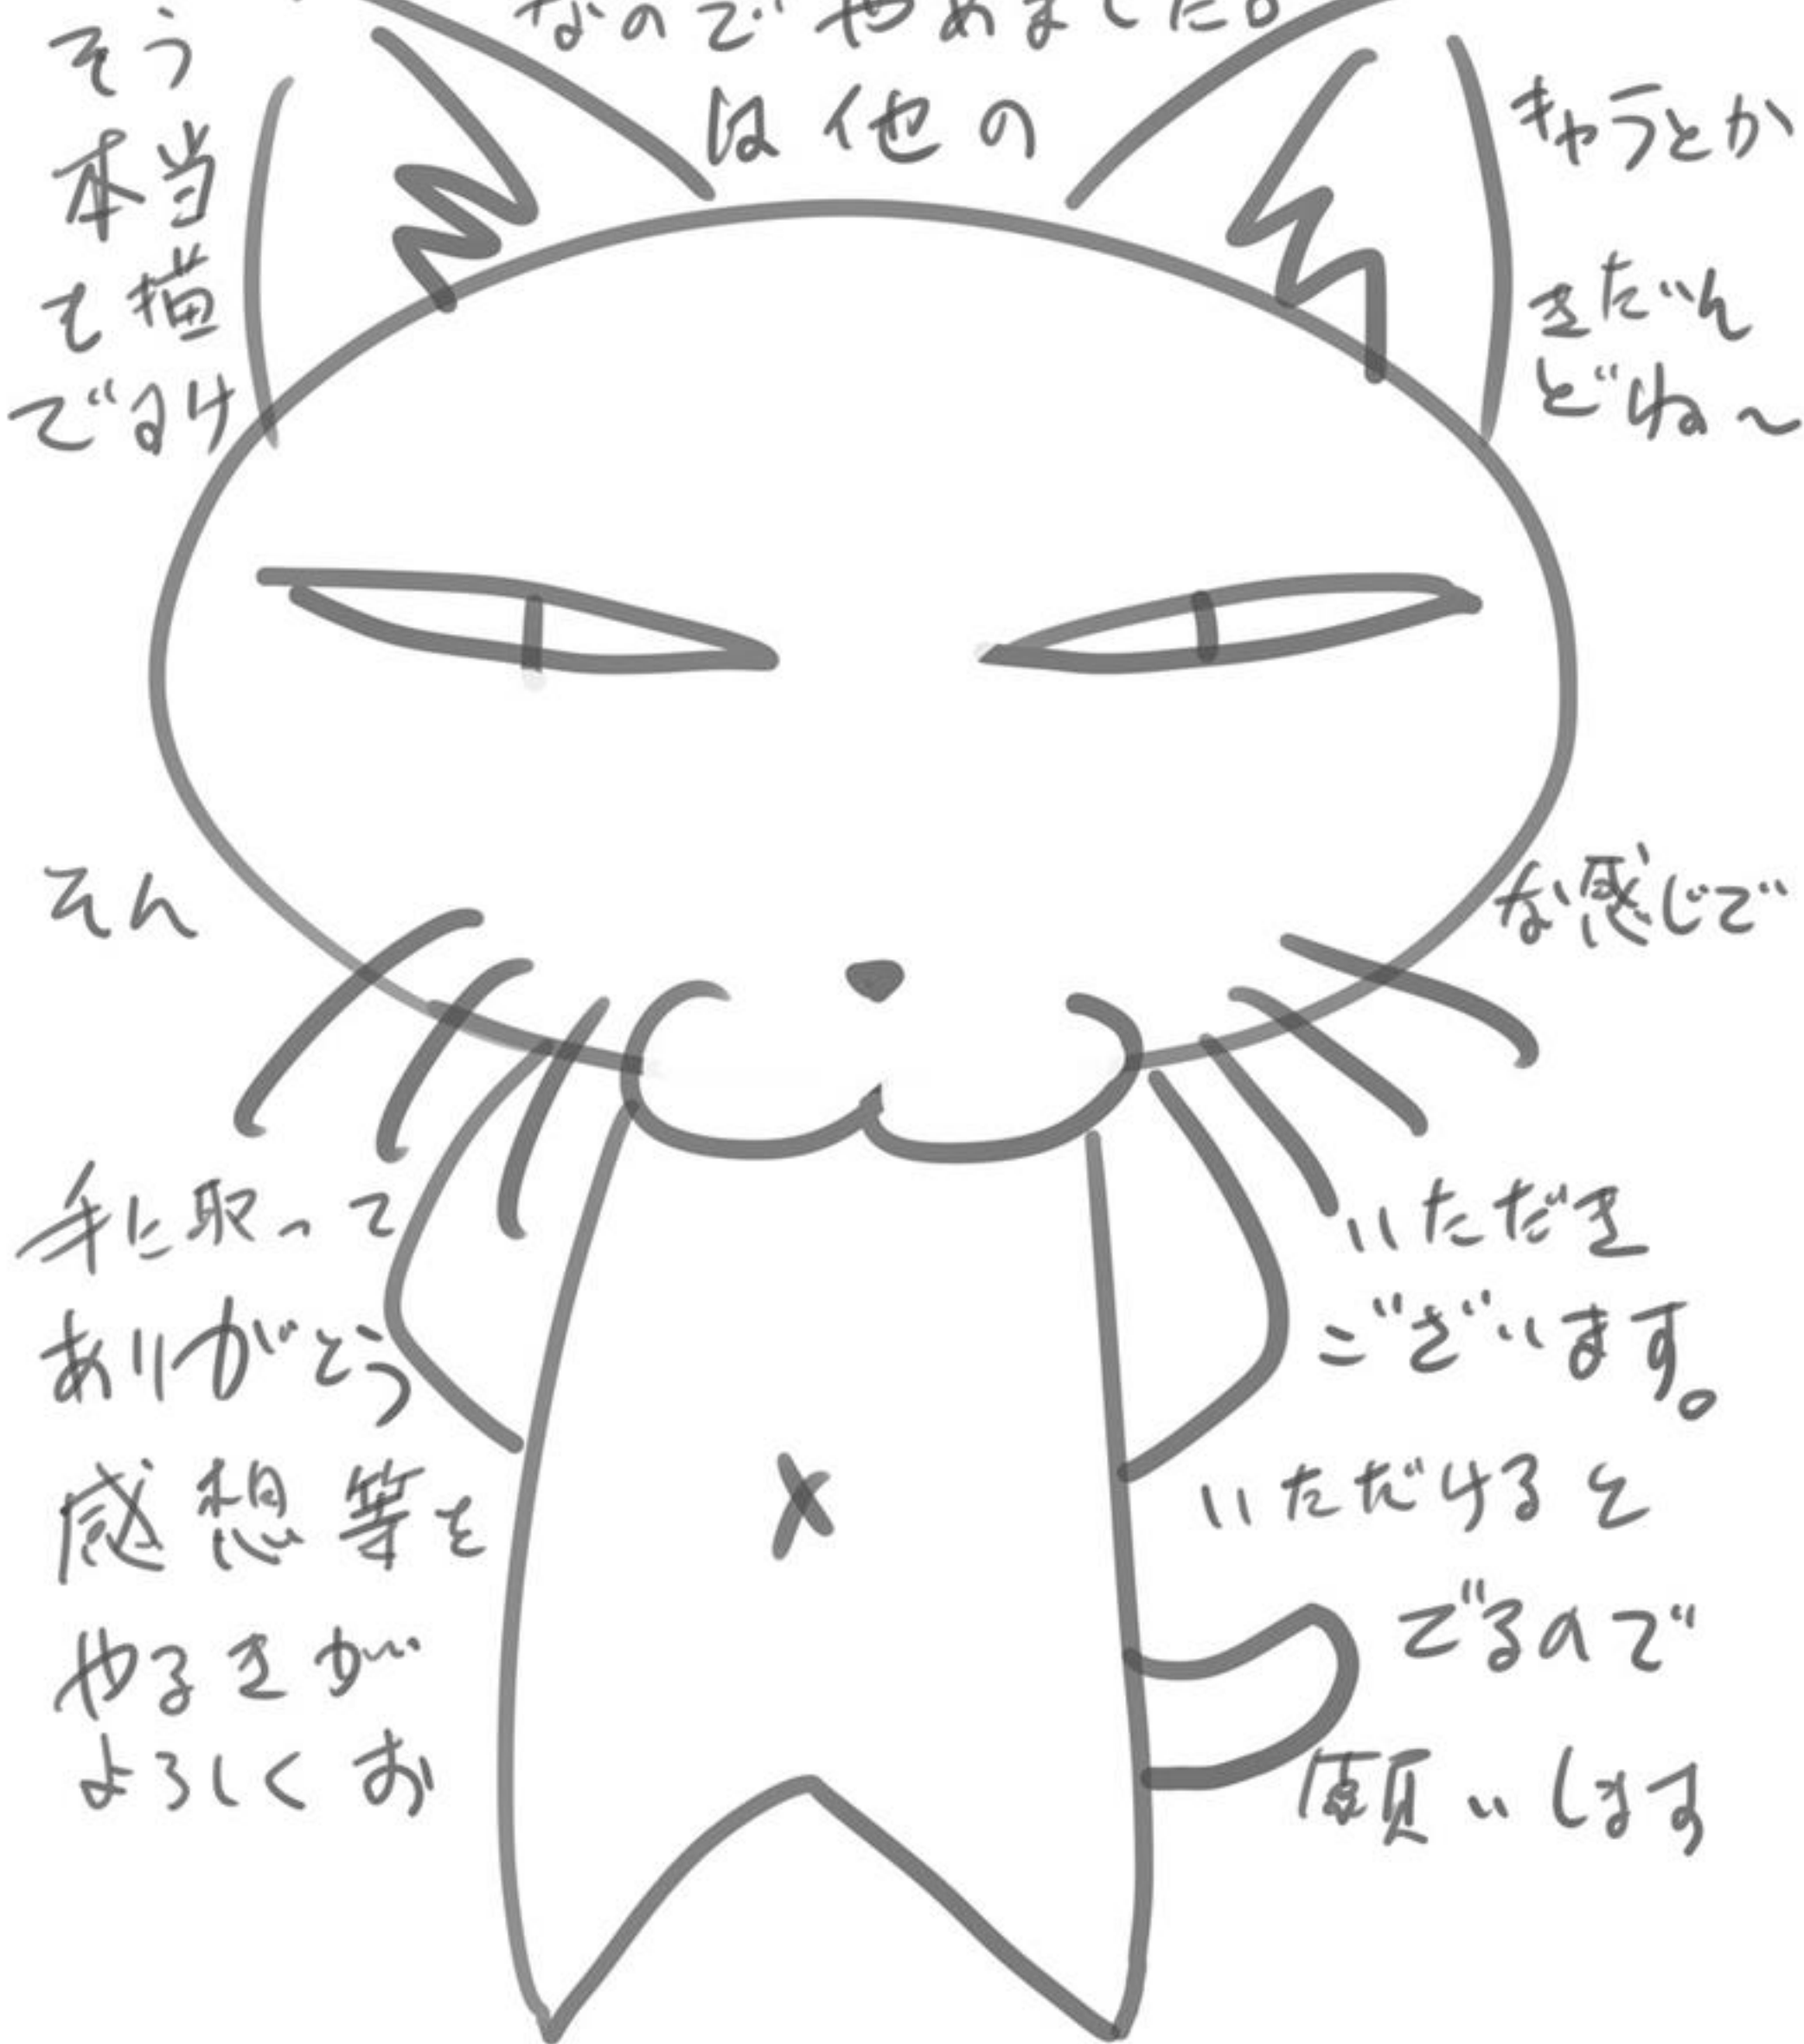 そう なのでやめました。
本当 は他の キャラとか
も描 きたいん
ですけ どね～
そん な感じで
手に取って いただき
ありがとう ございます。
感想等を いただけると
やるきが でるので
よろしくお 願いします